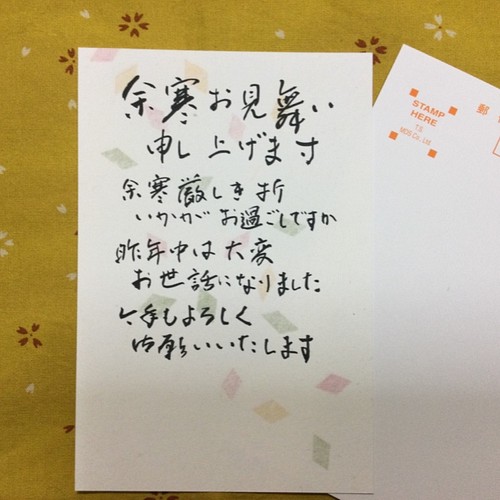 余寒お見舞い
申し上げます
余寒厳しき折
いかがお過ごしですか
昨年中は大変
お世話になりました
今年もよろしく
御願いいたします
STAMP
HERE
T.S
MDS Co., Ltd.
郵